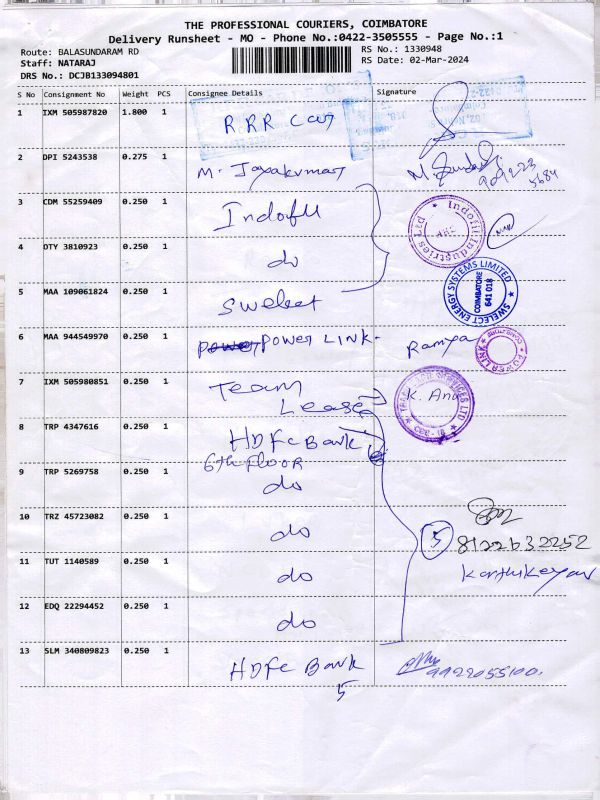 THE PROFESSIONAL COURIERS, COIMBATORE
Delivery Runsheet - MO - Phone No.:0422-3505555 - Page No.:1
Route: BALASUNDARAM RD RS No.: 1330948
Staff: NATARAJ RS Date: 02-Mar-2024
DRS No.: DCJB133094801
S No Consignment No Weight PCS Consignee Details Signature
1 IXM 505987820 1.800 1 RRR Car
2 DPI 5243538 0.275 1 M. Jayakumar
3 CDM 55259409 0.250 1 Indofil Indofil Industries Ltd
4 DTY 3810923 0.250 1 do
5 MAA 109061824 0.250 1 Swelect SWELECT ENERGY SYSTEMS LIMITED COIMBATORE 641 018
6 MAA 944549970 0.250 1 POWER LINK. Ramya POWER LINK
7 IXM 505980851 1 Team K. Anu
0.250
Lease
8 TRP 4347616 0.250 1 HDFC Bank
6th FLOOR
9 TRP 5269758 0.250 1 do
10 TRZ 45723082 0.250 1 do 5 8122632252
11 TUT 1140589 0.250 1 do Karthikeyan
12 EDQ 22294452 0.250 1 do
13 SLM 340809823 0.250 1 HDFC Bank 9922055100.
5